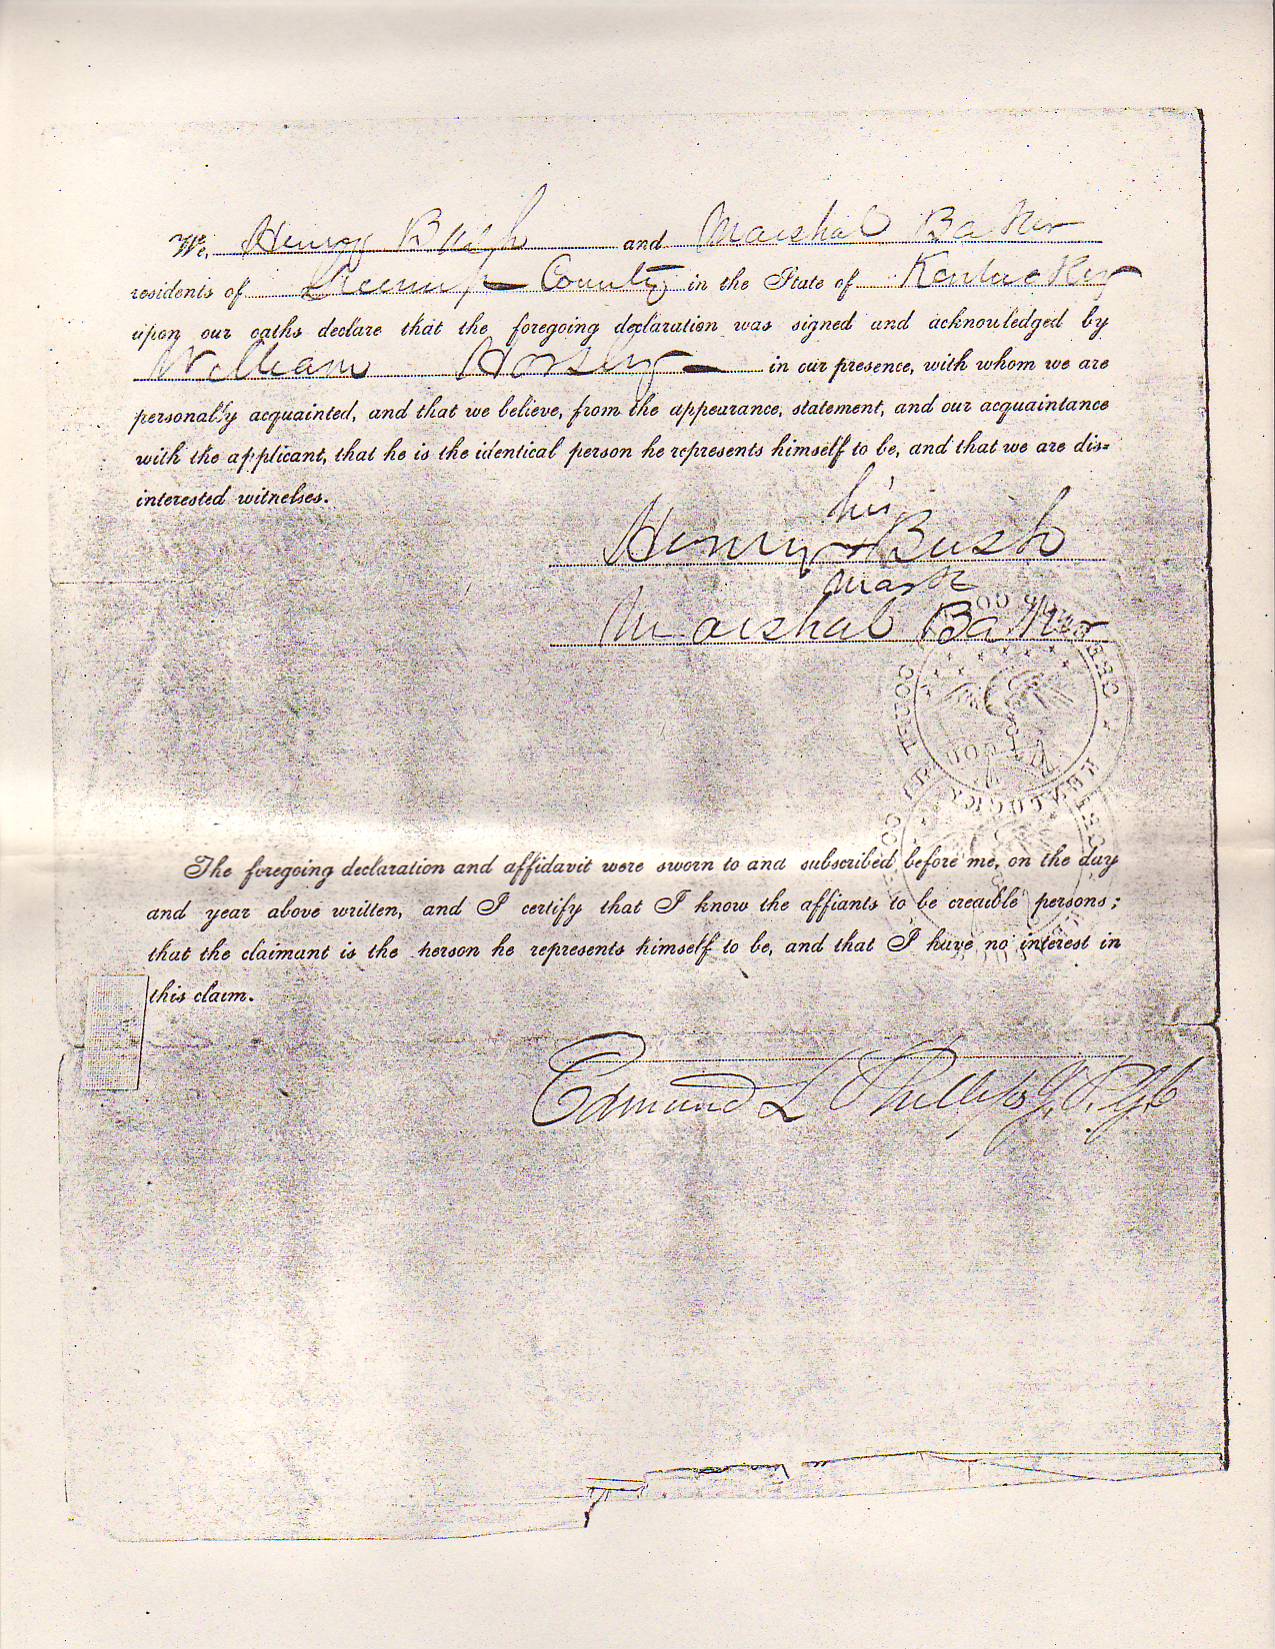 We, Henry Bush and Marshal Baker
residents of Greenup County in the State of Kentucky
upon our oaths declare that the foregoing declaration was signed and acknowledged by
William Horsley in our presence, with whom we are
personally acquainted, and that we believe, from the appearance, statement, and our acquaintance
with the applicant, that he is the identical person he represents himself to be, and that we are dis=
interested witnesses.
his
Henry x Bush
mark
Marshal Baker
The foregoing declaration and affidavit were sworn to and subscribed before me, on the day
and year above written, and I certify that I know the affiants to be credible persons;
that the claimant is the person he represents himself to be, and that I have no interest in
this claim.
Edmund L Phillips J. P. G. C